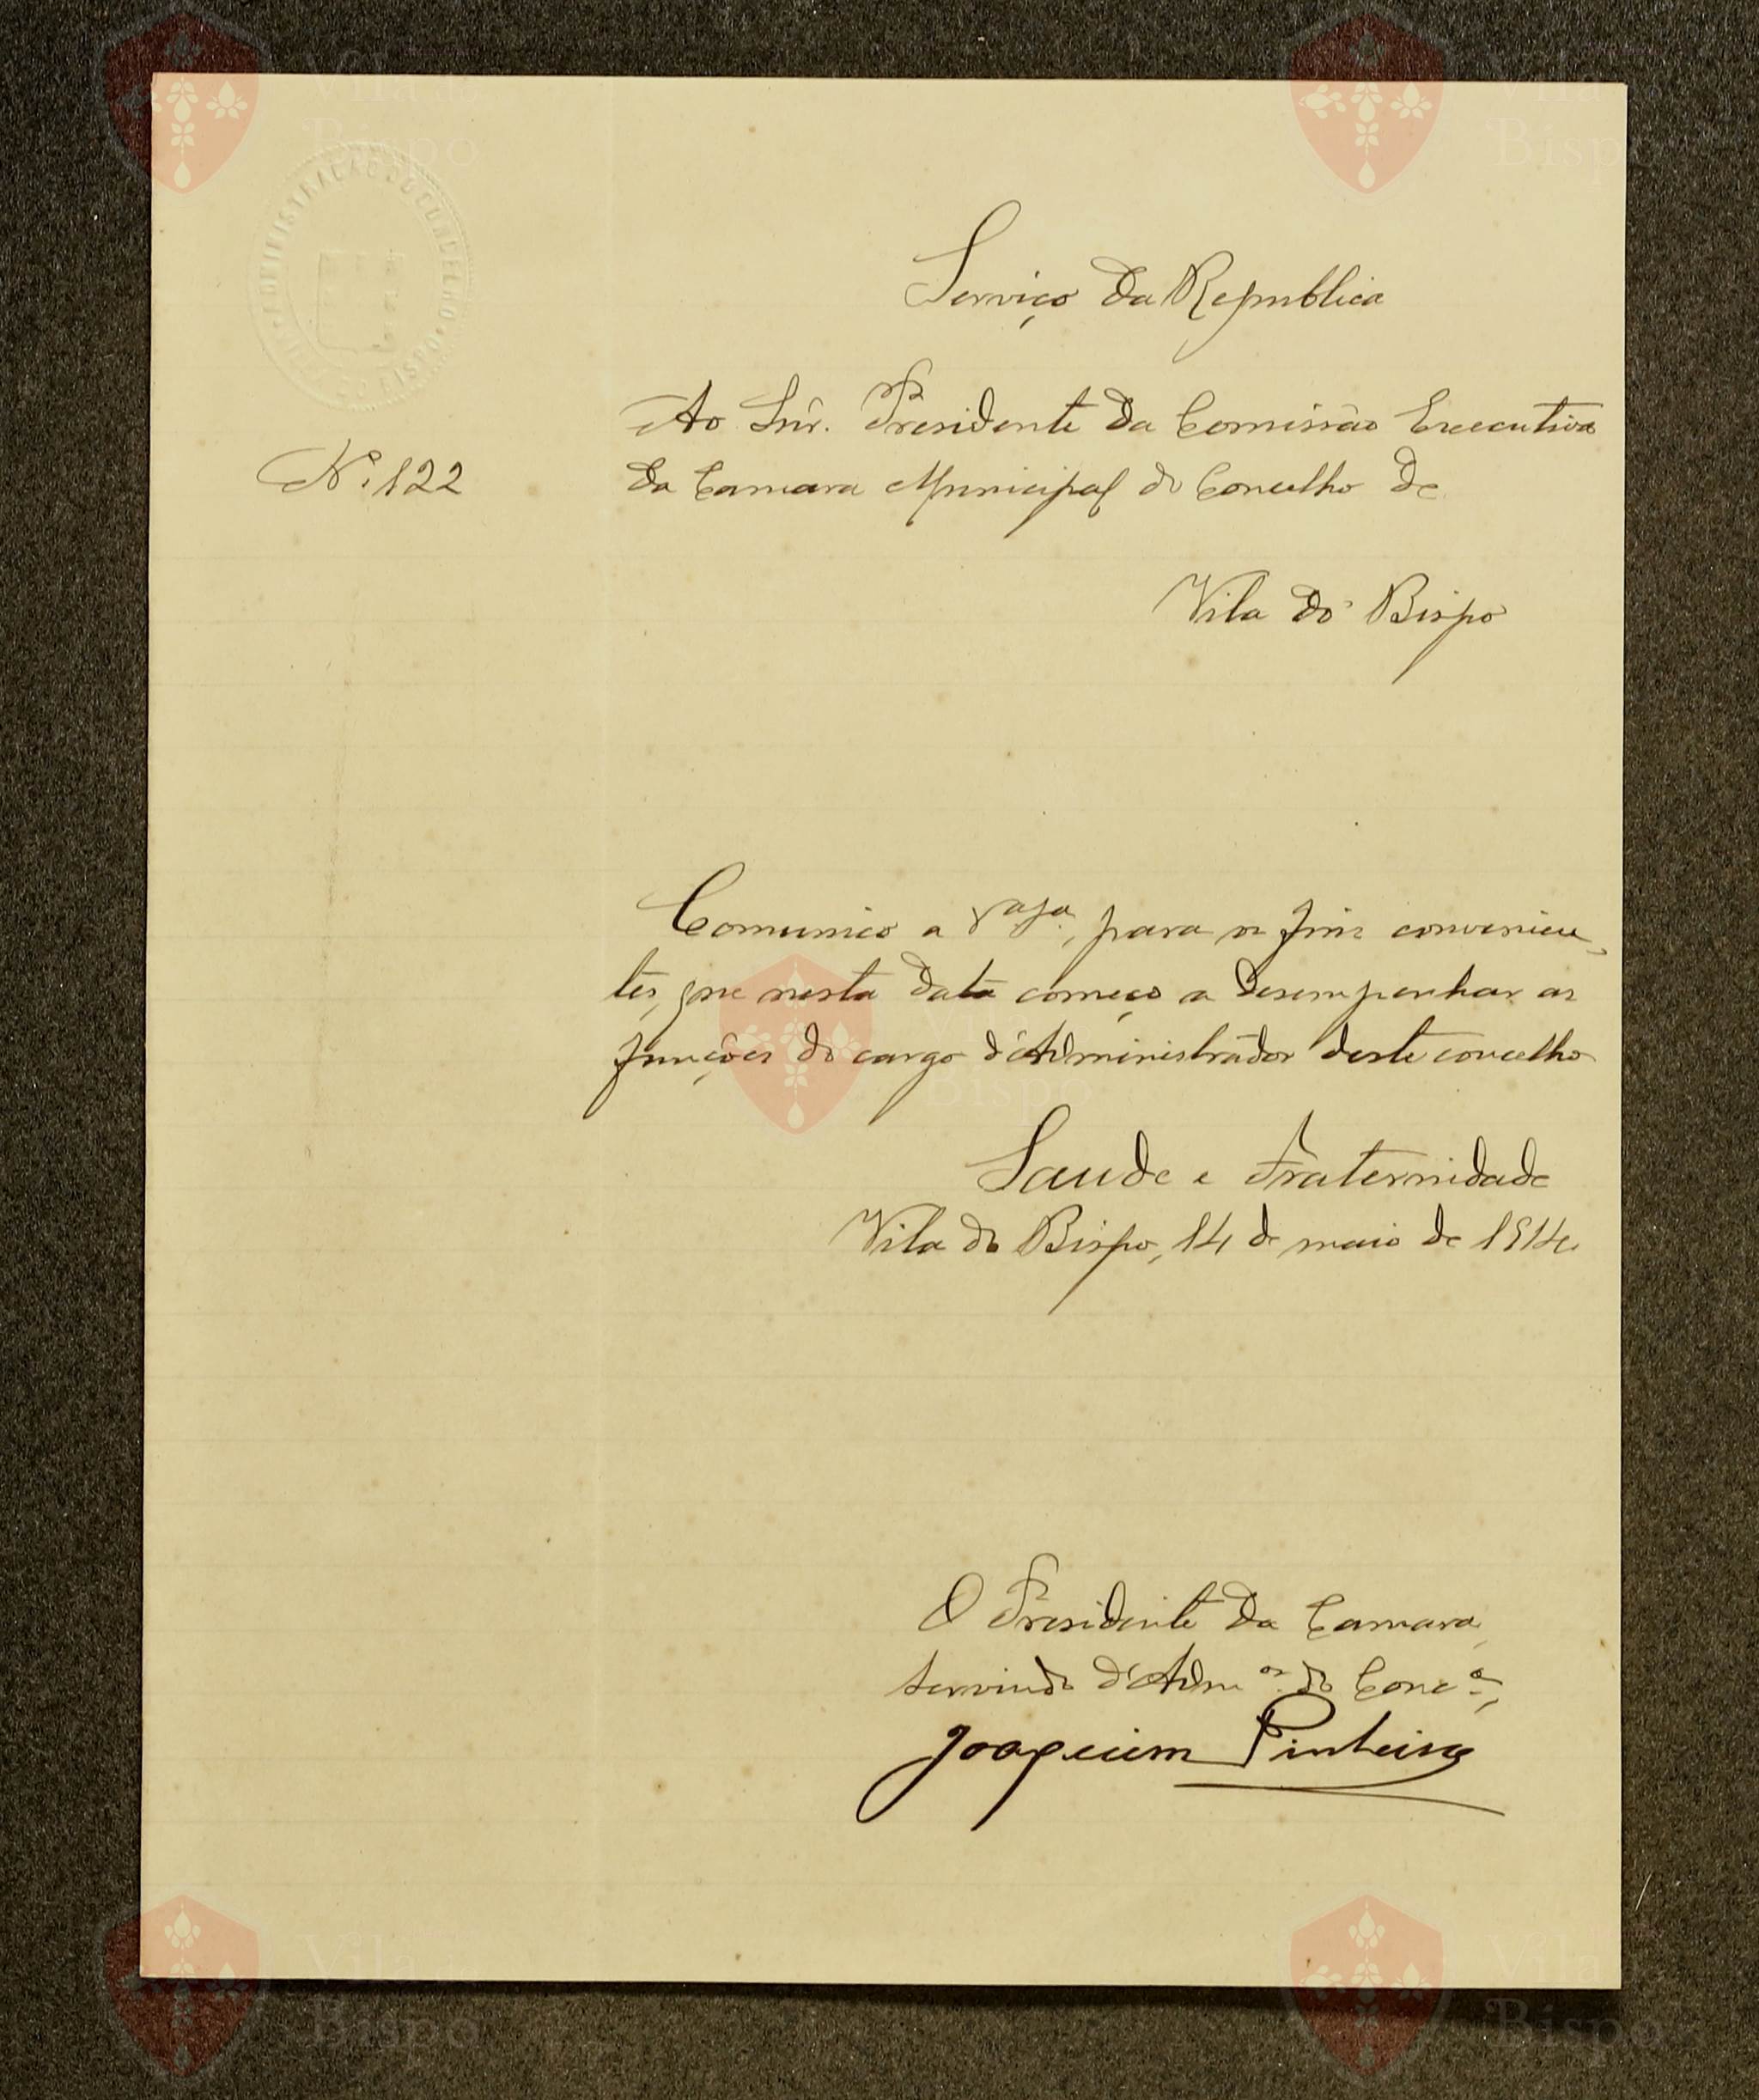 ADMINISTRAÇÃO DO CONCELHO · VILA DO BISPO ·
Serviço da Republica
Nº 122
Ao Snr. Presidente da Comissão Executiva
da Camara Municipal do Concelho de
Vila do Bispo
Comunico a V. para os fins convenien-
tes, que nesta data começo a desempenhar as
funções do cargo d'Administrador deste concelho
Saude e Fraternidade
Vila do Bispo, 14 de maio de 1914.
O Presidente da Camara,
servindo d'Admor. do Conco,
Joaquim Pinheiro
Vila do
Bispo